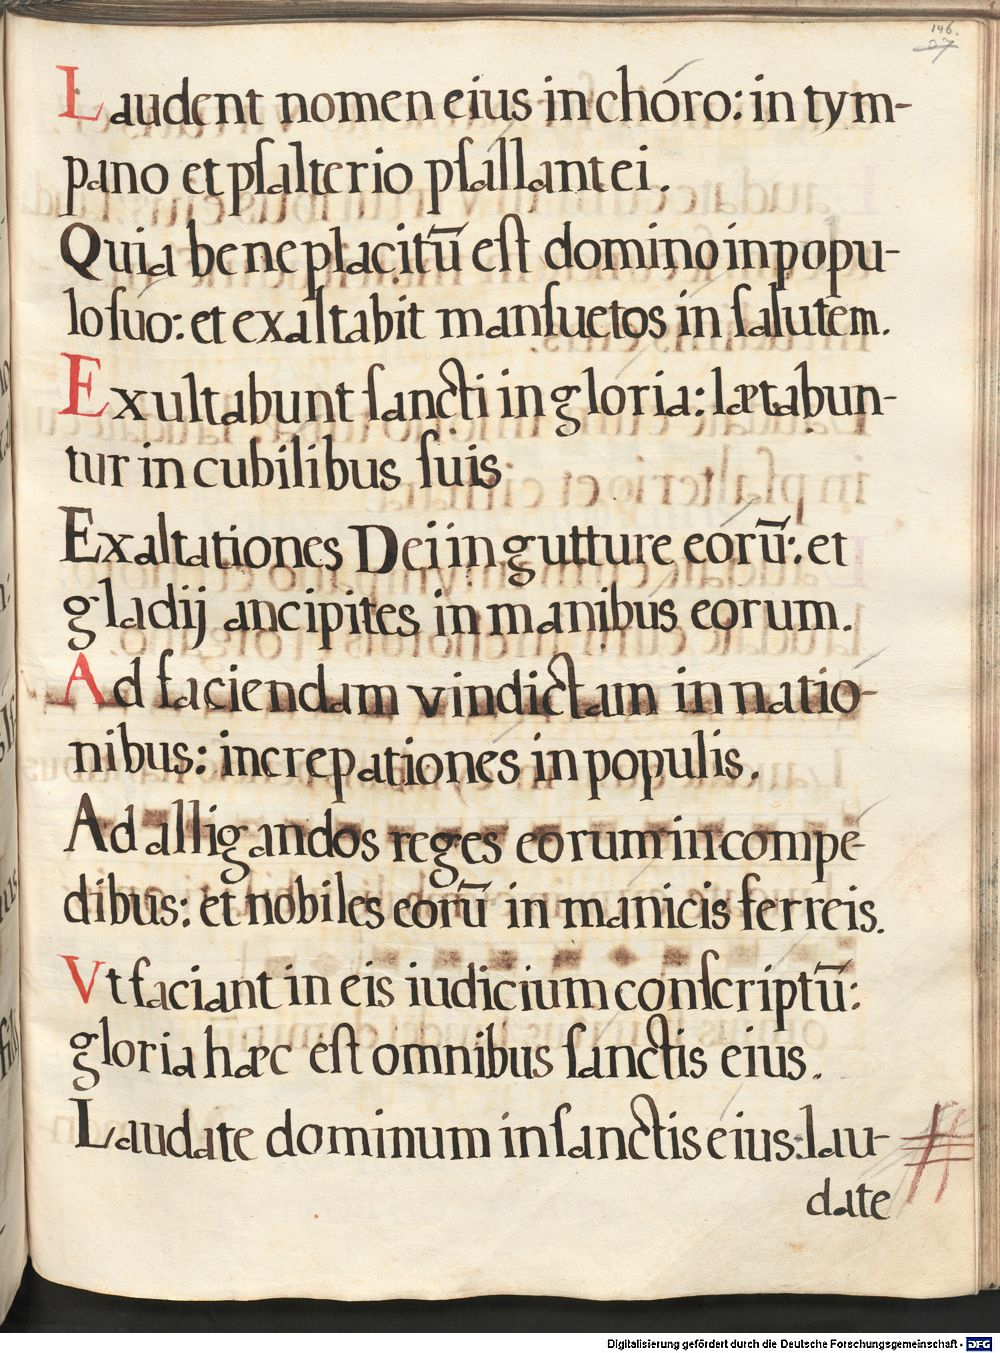 146.
97
Laudent nomen eius in choro: in tym-
pano et pſalterio pſallant ei.
Quia beneplacitū eſt domino in popu-
lo ſuo: et exaltabit manſuetos in ſalutem.
Exultabunt ſancti in gloria: lætabun-
tur in cubilibus ſuis.
Exaltationes Dei in gutture eorū: et
gladij ancipites in manibus eorum.
Ad faciendam vindictam in natio-
nibus: increpationes in populis.
Ad alligandos reges eorum in compe-
dibus: et nobiles eorū in manicis ferreis.
Vt faciant in eis iudicium conſcriptū:
gloria hæc eſt omnibus ſanctis eius.
Laudate dominum in ſanctis eius: lau-
date
Digitalisierung gefördert durch die Deutsche Forschungsgemeinschaft - DFG